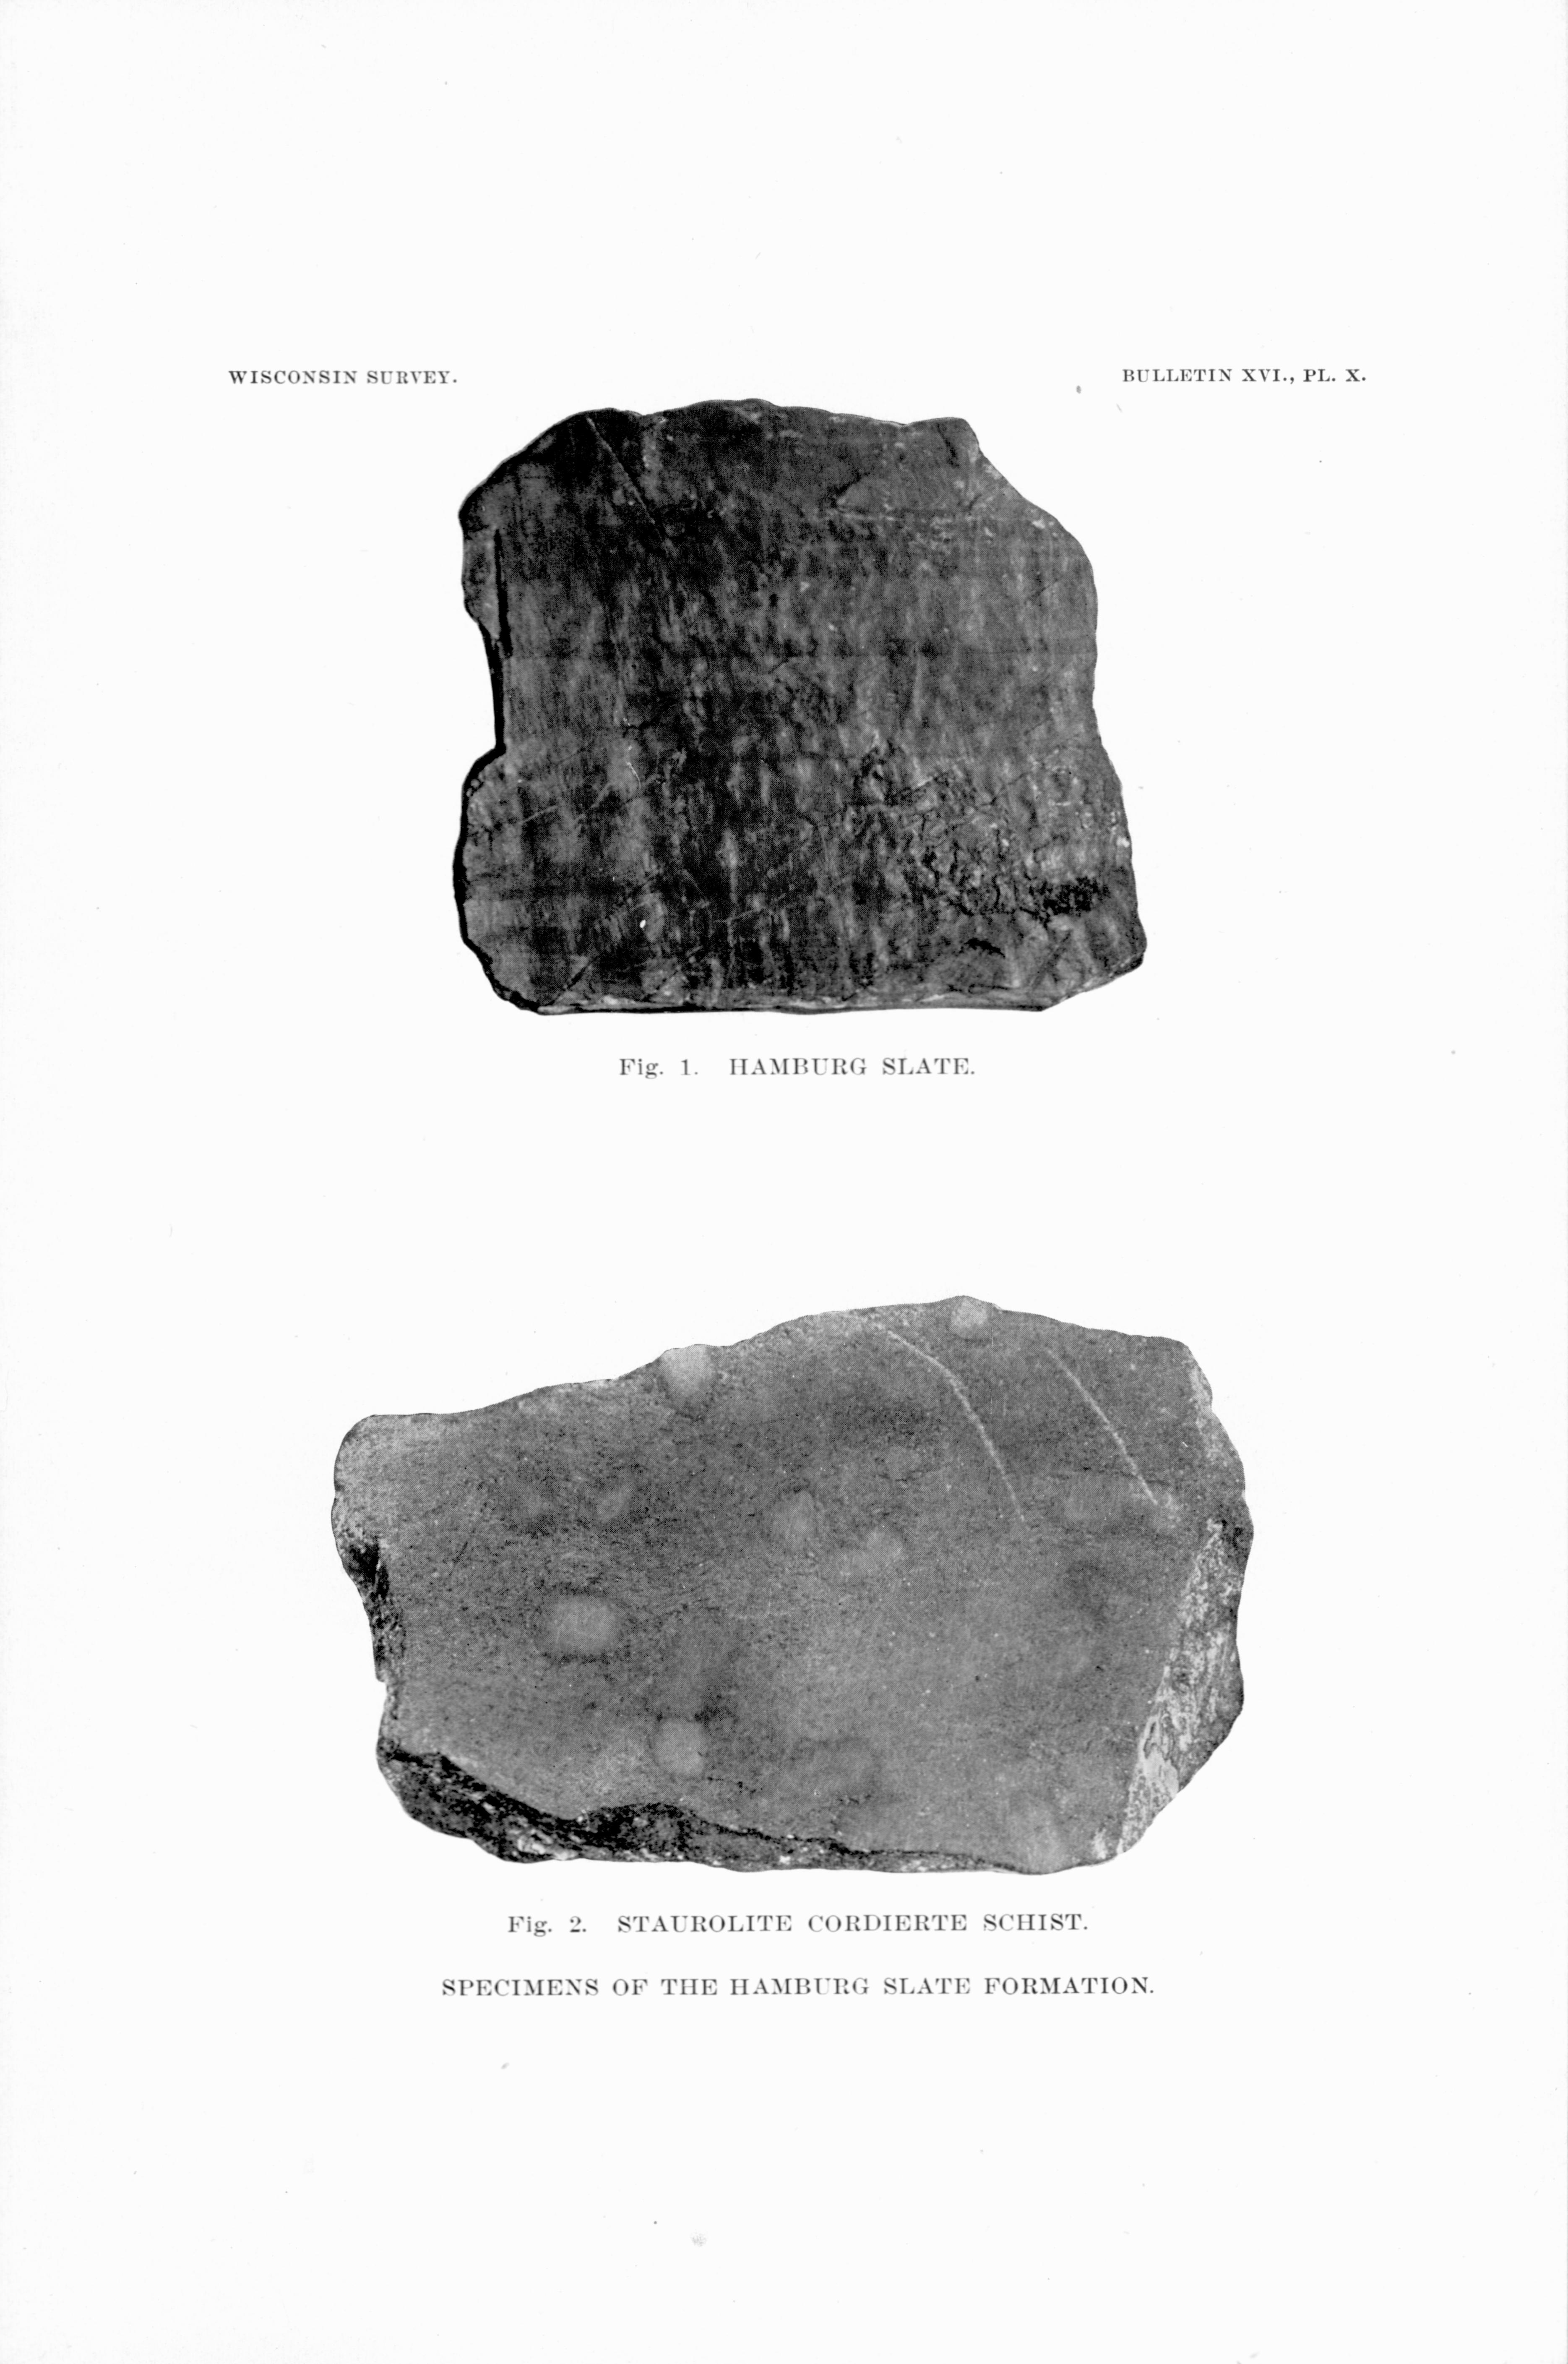 WISCONSIN SURVEY.
BULLETIN XVI., PL. X.
Fig. 1. HAMBURG SLATE.
Fig. 2. STAUROLITE CORDIERTE SCHIST.
SPECIMENS OF THE HAMBURG SLATE FORMATION.